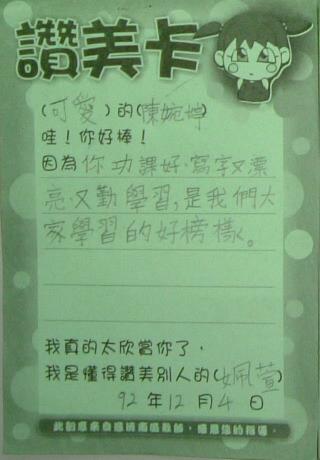 讚美卡
(可愛)的(陳婉婷)
哇！你好棒！
因為你功課好.寫字又漂
亮.又勤學習,是我們大
家學習的好榜樣。
我真的太欣賞你了，
我是懂得讚美別人的(姵萱)
92 年 12 月 4 日